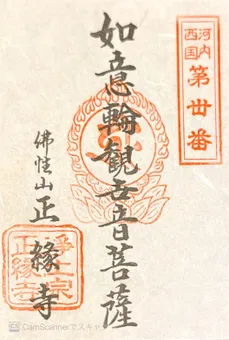 河内
西国
第丗番
如意輪観世音菩薩
佛性山
正縁寺
浄土宗
正縁寺
CamScannerでスキャン